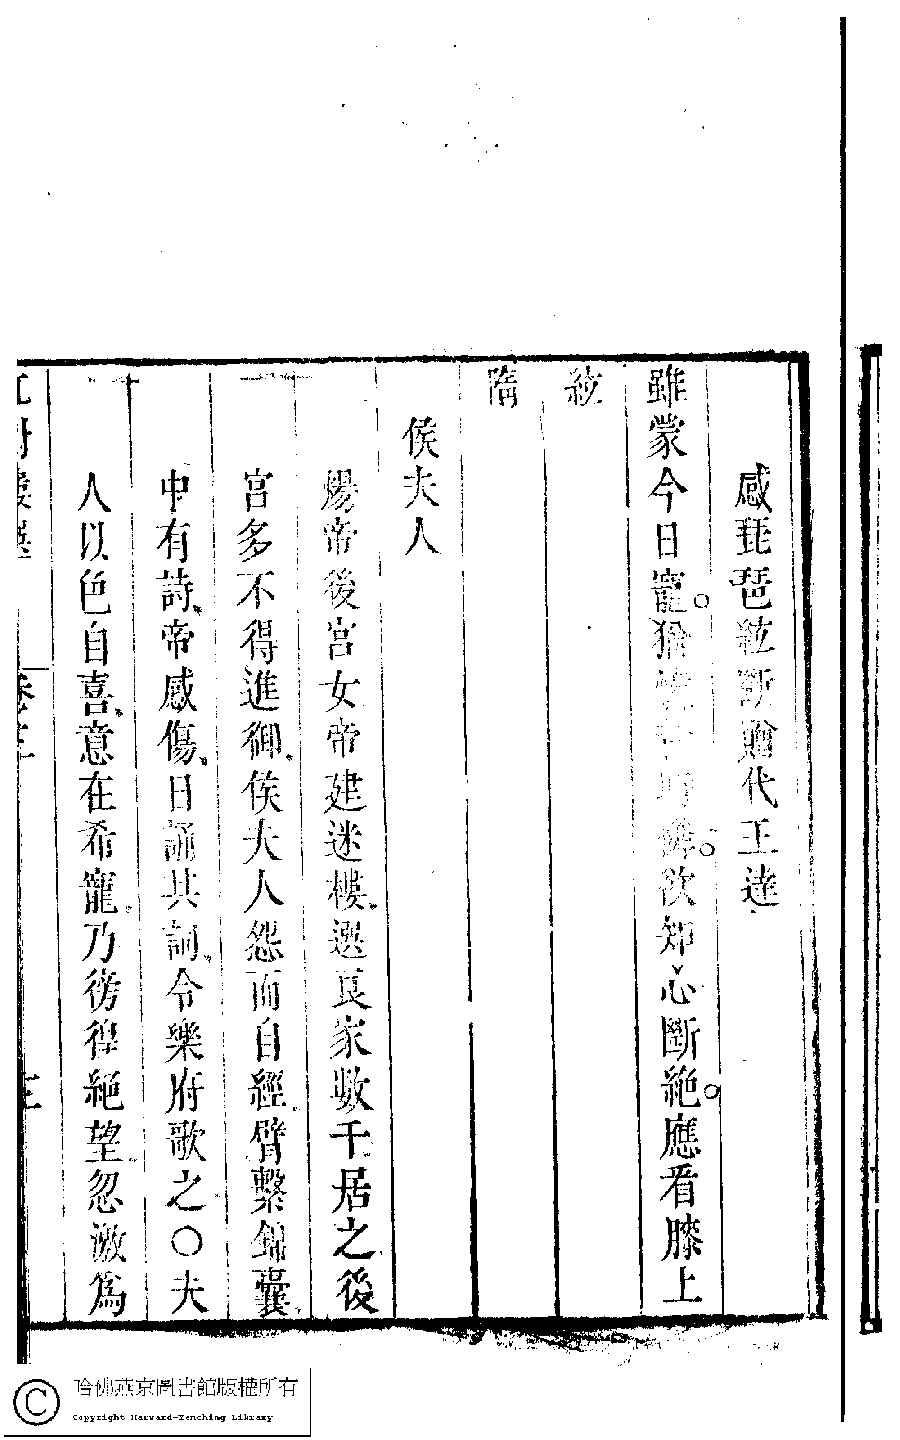 感琵琶絃斷贈代王達
雖蒙今日寵猶憶昔時憐欲知心斷絕應看膝上
絃
隋
侯夫人
煬帝後宮女帝建迷樓選良家數千居之後
宮多不得進御侯夫人怨而自經臂繫錦囊
中有詩帝感傷日誦其詞令樂府歌之○夫
人以色自喜意在希寵乃徬徨絕望忽激爲
卷三
三
哈佛燕京圖書館版權所有
Copyright Harvard-Yenching Library